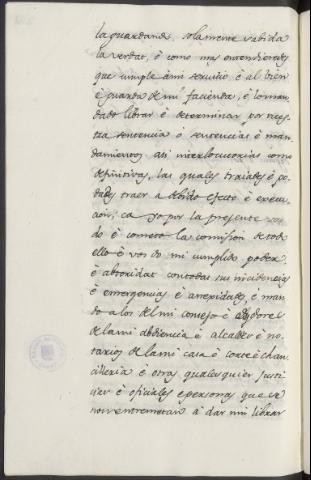 la guardando, solamente vabida
la verdat, é como mas entendieredes
que cumple á mi servicio é al bien
é guarda de mi facienda, é lo man
dado librar é determinar por vues
tra sentencia ó sentencias é man
damientos asi interlocutorias como
definitivas, las quales traiades é po
dades traer a devido efecto é execu
cion; ca yo por la presente vos
do é cometo la comision de todo
ello é vos do mi cumplido poder
é abtoridat con todas sus incidencias
é emergencias é anexidades, é man
do á los del mi consejo é oydores
de la mi abdiencia é alcaldes é no
tarios de la mi casa é corte é chan
cilleria é otras qualesquier justi
cias é oficiales é personas que se
non entremetan á dar nin librar